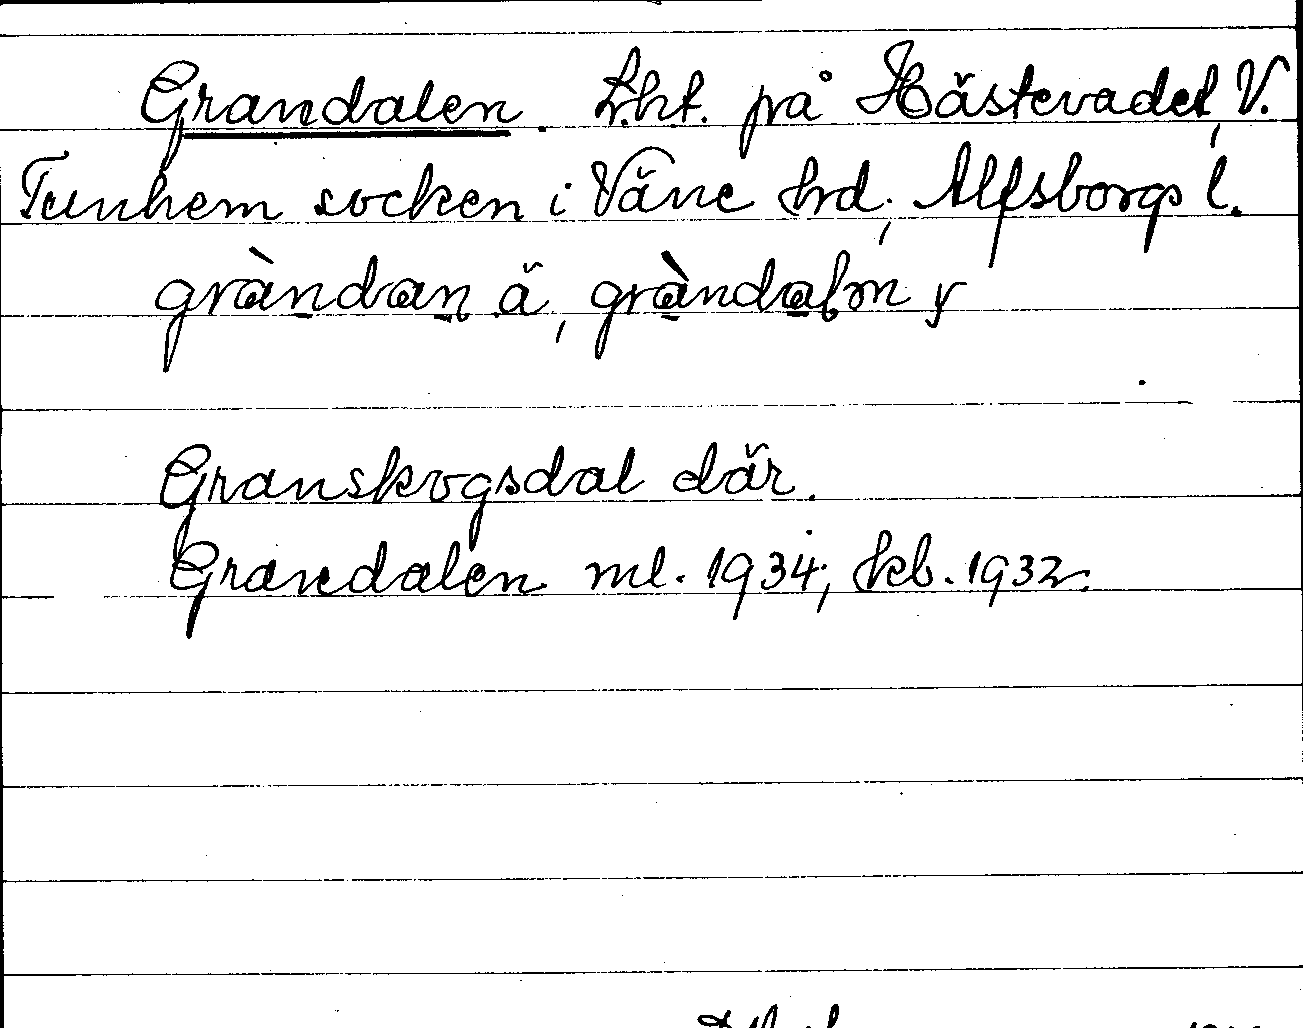 Grandalen. Lht. på Hästevadet, V.
Tunhem socken i Väne hrd, Älfsborgs l.
gràndan ä, gràndaln y
Granskogsdal där.
Grandalen ml. 1934; kb. 1932.